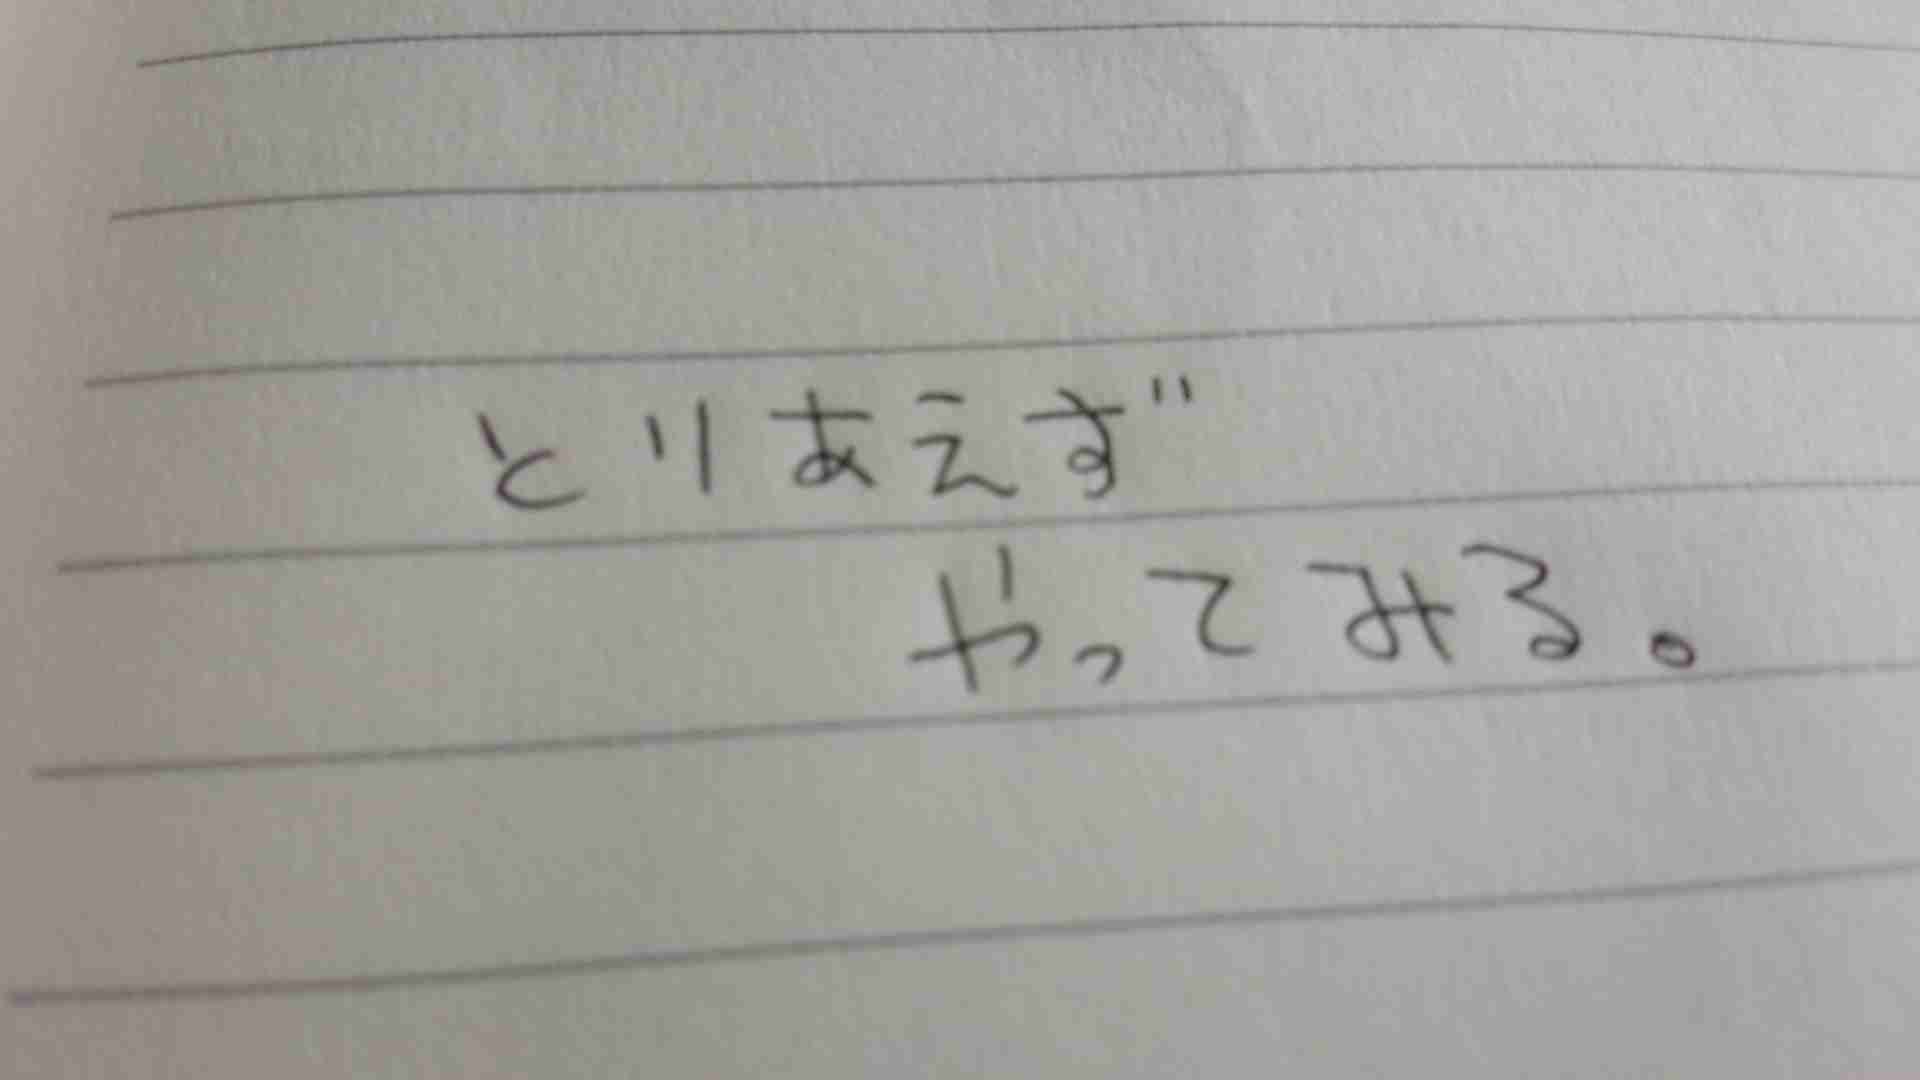 とりあえず
やってみる。